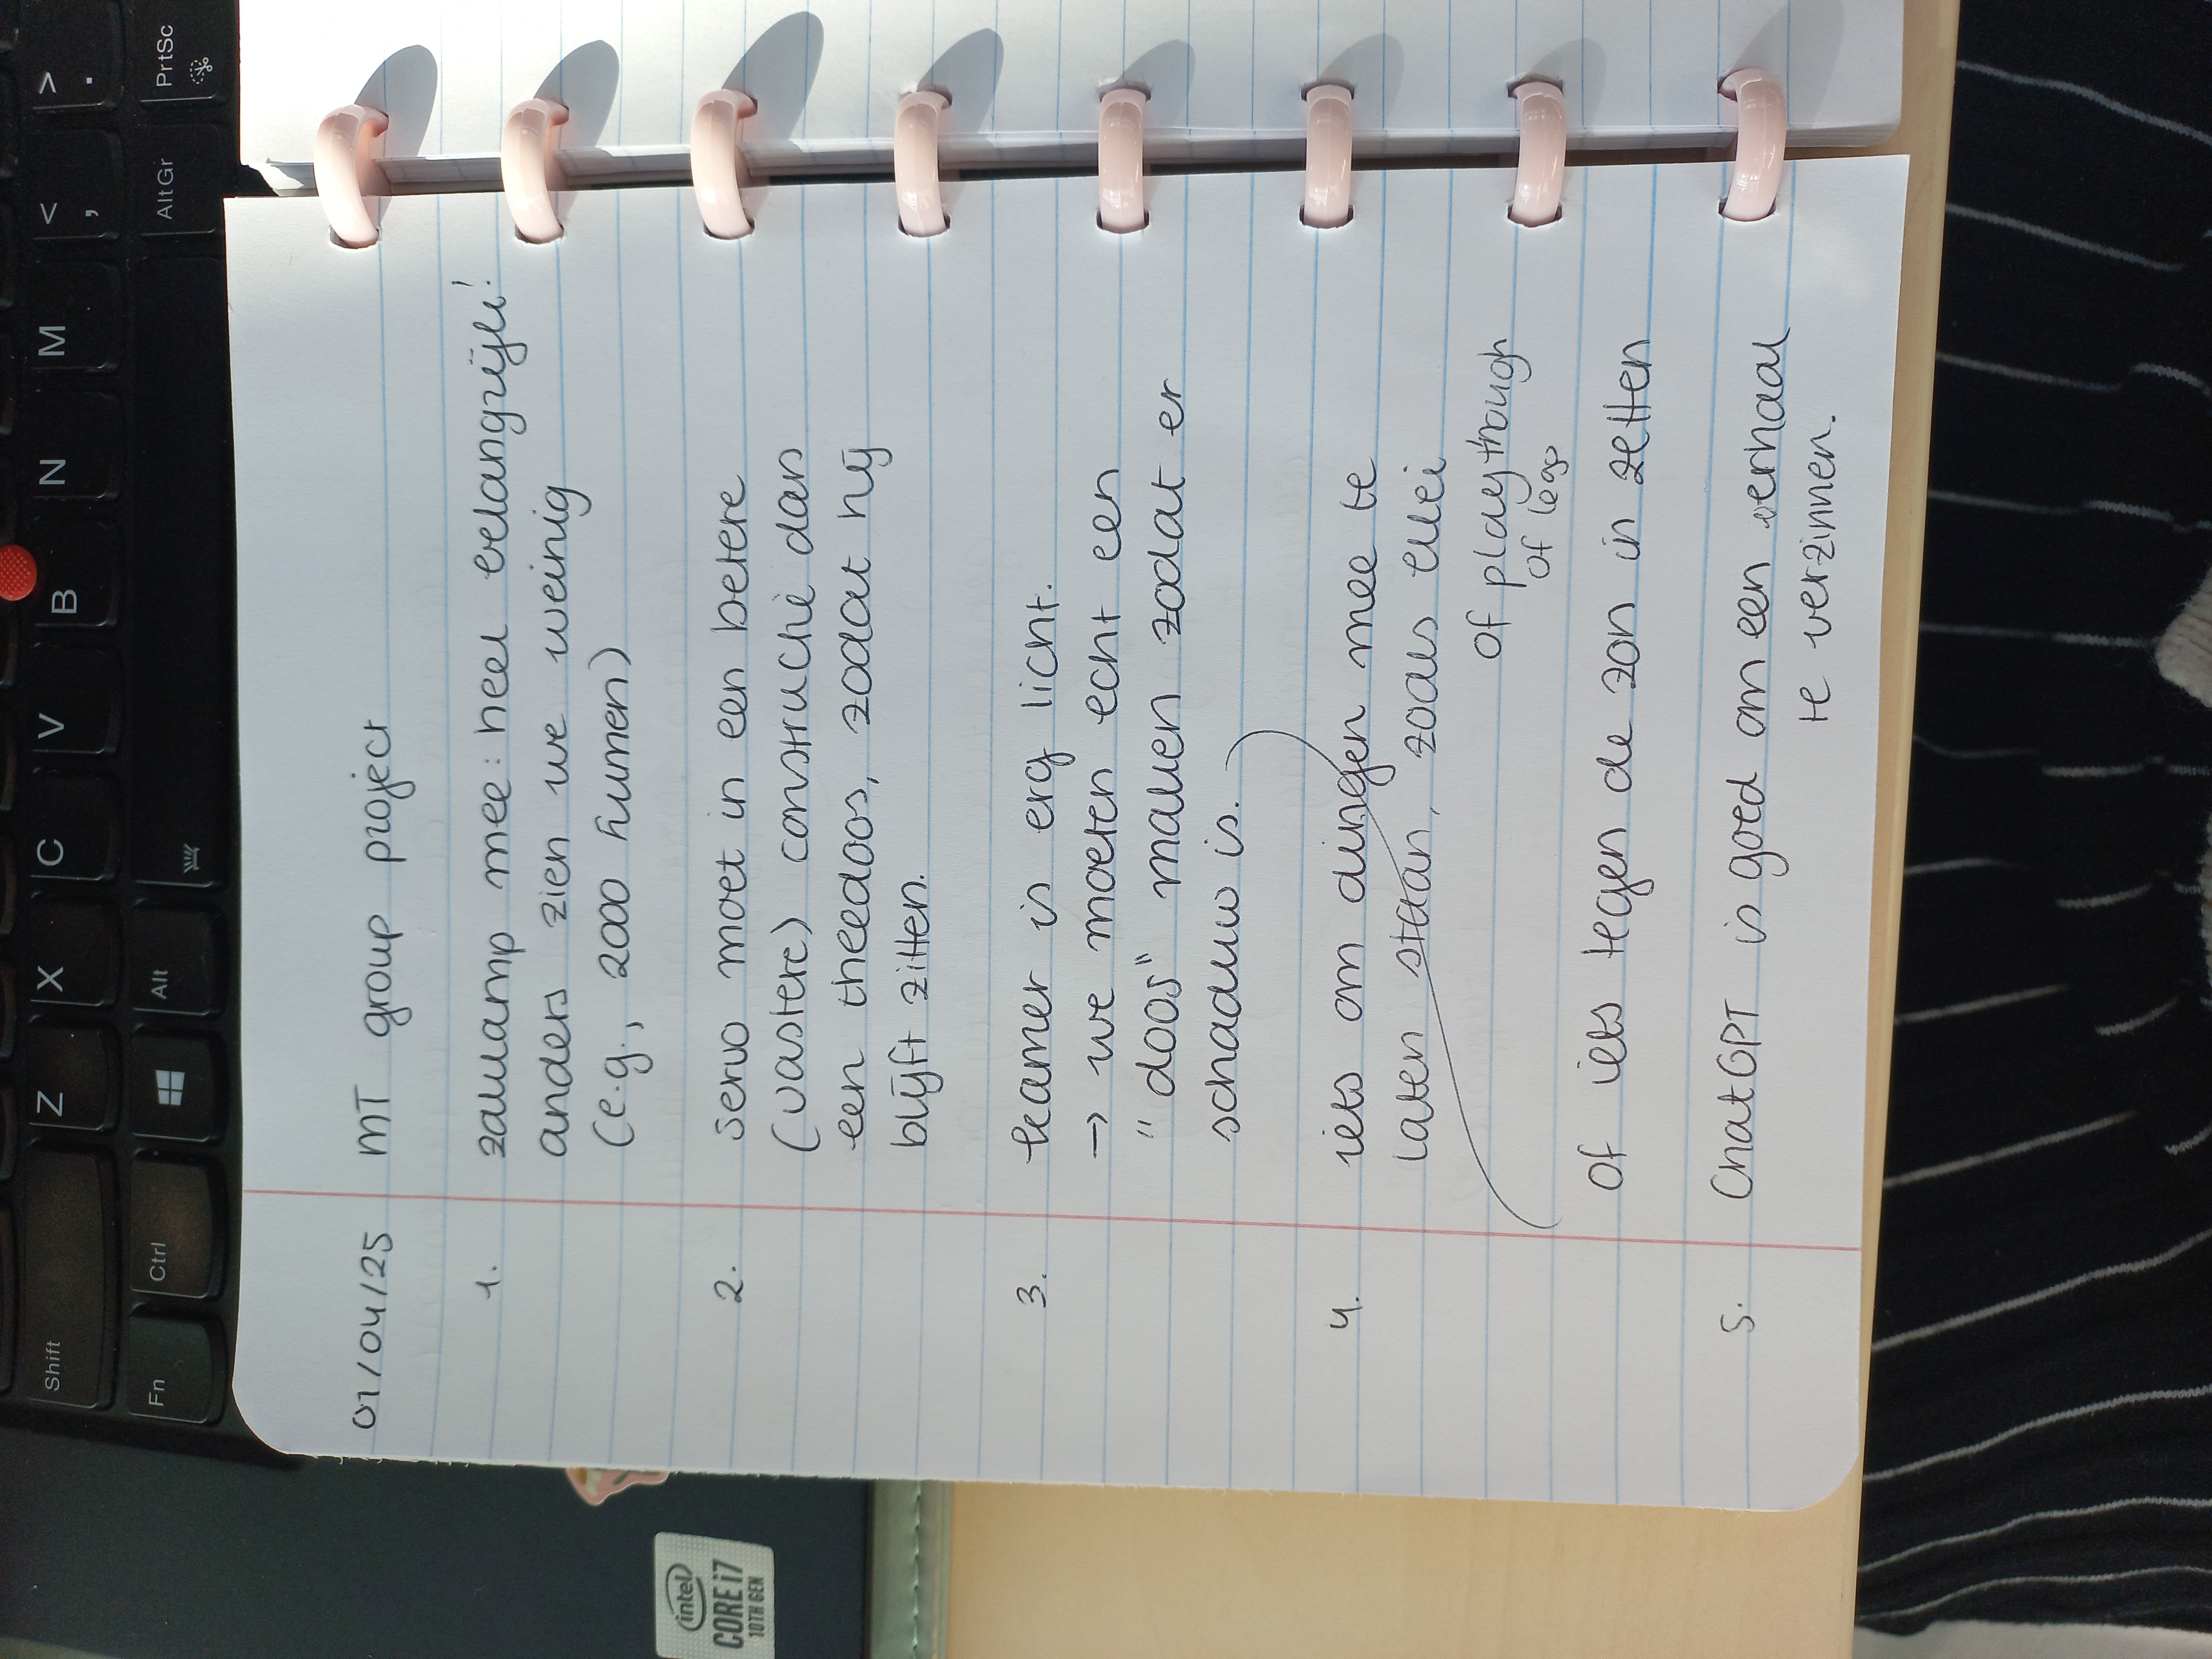 Shift Z X C V B N M < , > .
Fn Ctrl Alt AltGr PrtSc
intel
CORE i7
10TH GEN
01/04/25 MT group project
1. zaklamp mee: heel belangrijk!
anders zien we weinig
(e.g., 2000 lumen)
2. servo moet in een betere
(vastere) constructie dan
een theedoos, zodat hij
blijft zitten.
3. kamer is erg licht.
→ we moeten echt een
"doos" maken zodat er
schaduw is.
4. iets om dingen mee te
laten staan, zoals klei
of playthough
of lego
of iets tegen de zon in zetten
5. ChatGPT is goed om een verhaal
te verzinnen.